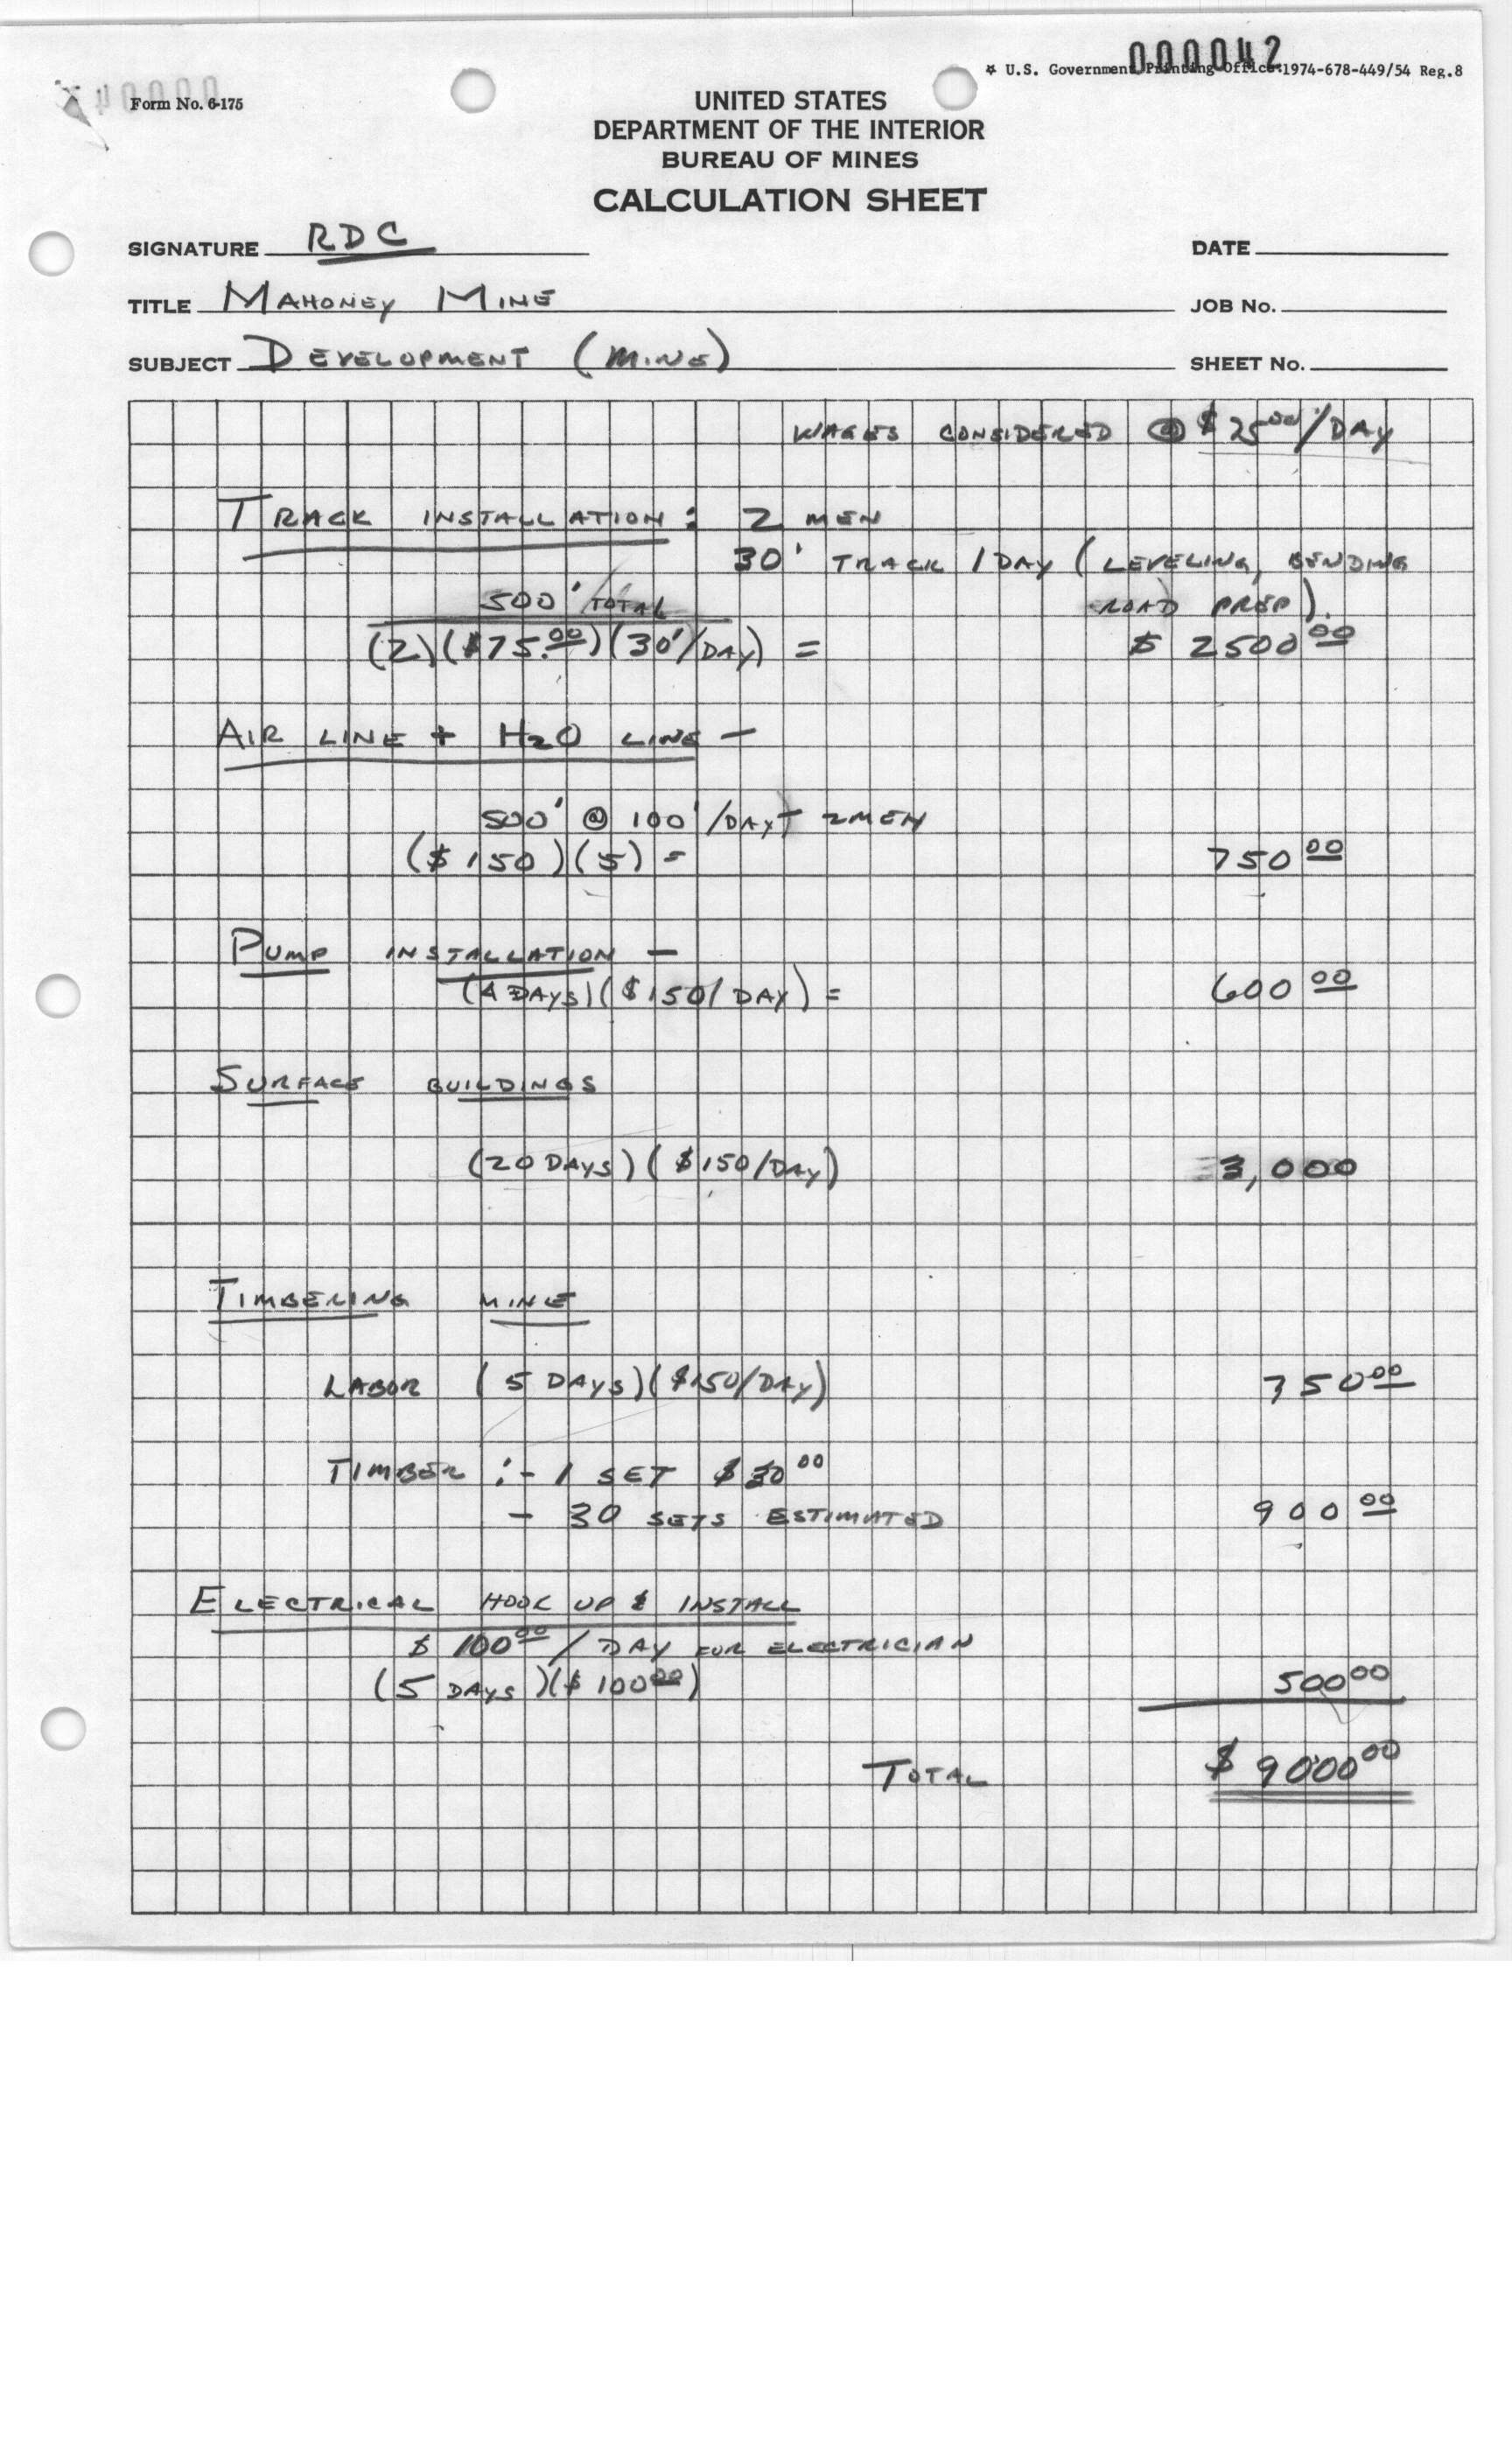 000042
* U.S. Government Printing Office:1974-678-449/54 Reg.8
Form No. 6-175
UNITED STATES
DEPARTMENT OF THE INTERIOR
BUREAU OF MINES
CALCULATION SHEET
SIGNATURE RDC
DATE
TITLE MAHONEY MINE
JOB No.
SUBJECT DEVELOPMENT (MINE)
SHEET No.
WAGES CONSIDERED @ $ 75 00/DAY
TRACK INSTALLATION: 2 MEN
30' TRACK / DAY (LEVELING, BENDING
500' TOTAL ROAD PREP).
(2)($75.00)(30'/DAY) = $ 2500 00
AIR LINE + H2O LINE -
500' @ 100'/DAY - 2 MEN
($150)(5) = 750 00
PUMP INSTALLATION -
(4 DAYS)($150/DAY) = 600 00
SURFACE BUILDINGS
(20 DAYS)($150/DAY) 3,000
TIMBERING MINE
LABOR (5 DAYS)($150/DAY) 750 00
TIMBER :- 1 SET $30 00
- 30 SETS ESTIMATED 900 00
ELECTRICAL HOOK UP & INSTALL
$ 100 00 / DAY FOR ELECTRICIAN
(5 DAYS)($ 100 00) 500 00
TOTAL $ 9000 00